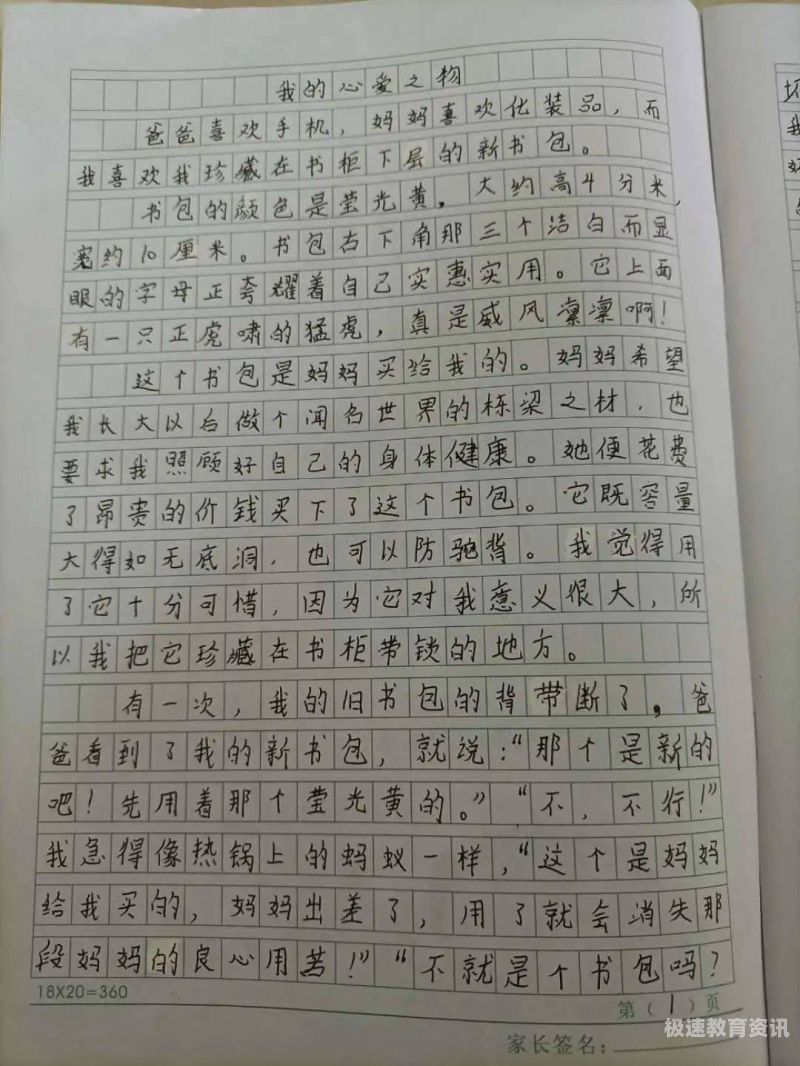 我的心爱之物
爸爸喜欢手机，妈妈喜欢化装品，而
我喜欢我珍藏在书柜下层的新书包。
书包的颜色是莹光黄，大约高4分米，
宽约10厘米。书包右下角那三个洁白而显
眼的字母正夸耀着自己实惠实用。它上面
有一只正虎啸的猛虎，真是威风凛凛啊！
这个书包是妈妈买给我的。妈妈希望
我长大以后做个闻名世界的栋梁之材，也
要求我照顾好自己的身体健康。她便花费
了昂贵的价钱买下了这个书包。它既容量
大得如无底洞，也可以防驼背。我觉得用
了它十分可惜，因为它对我意义很大，所
以我把它珍藏在书柜带锁的地方。
有一次，我的旧书包的背带断了，爸
爸看到了我的新书包，就说：“那个是新的
吧！先用着那个莹光黄的。”“不，不行！”
我急得像热锅上的蚂蚁一样，“这个是妈妈
给我买的，妈妈出差了，用了就会消失那
段妈妈的良心用苦！”“不就是个书包吗？
18X20=360
第（1）页
家长签名：
极速教育资讯
坏
我
妈